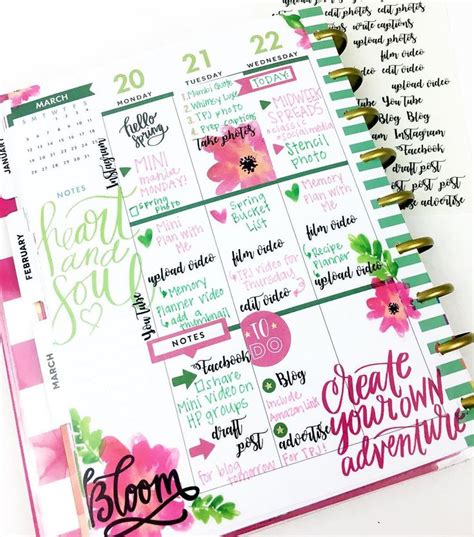 edit photos
edit photos
edit photos
options write captions
upload photos
film video
edit video
upload video
You Tube You Tube
Blog Blog Blog
Instagram
Facebook
draft post
post post post
advertise
MARCH
JANUARY
FEBRUARY
MARCH
20
MONDAY
21
TUESDAY
22
WEDNESDAY
hello
spring
Instagram
MINI
mania
MONDAY!
Spring
photo
1. Mambi Quote
2. Whimsy Luxe
3. TPJ photo
4. Prep captions
Take photos
TODAY:
MIDWEEK
SPREADS
Stencil
photo
NOTES
heart
and
soul
You Tube
Mini
Plan with
Me
upload video
Memory
Planner video
add a
thumbnail
Spring
Bucket
List
film video
TPJ video for
Thursday
edit video
Memory
Plan with Me
film video
Recipe
Planner
upload video
NOTES
Facebook
share
Mini video on
HP groups
draft
post
for blog
tomorrow
TO
DO
Blog
Include
Amazon Link
advertise
For TPJ!
create
your own
adventure
Bloom